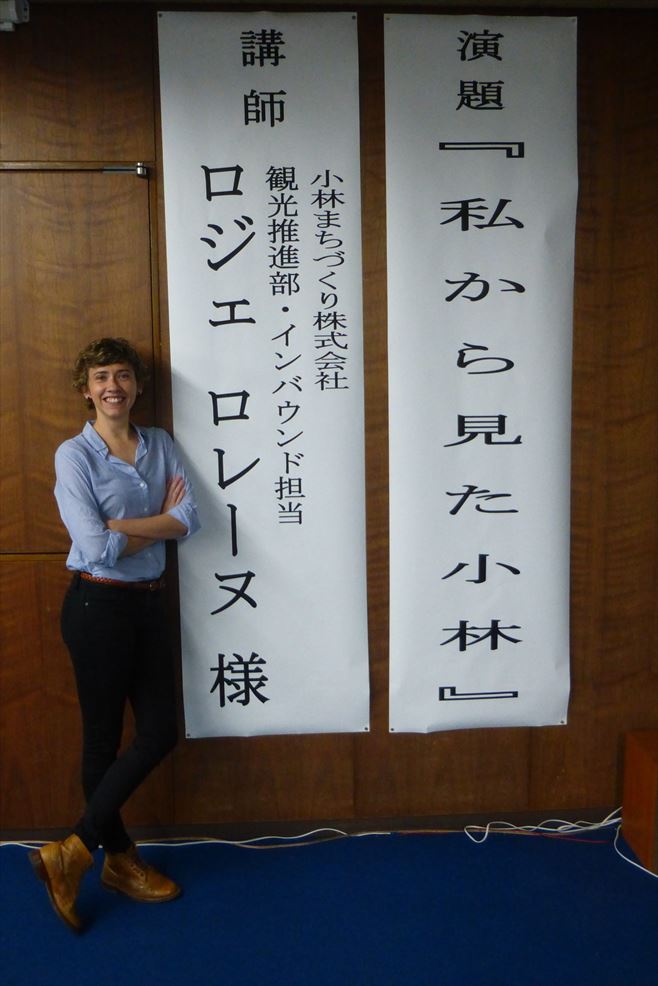 演題『私から見た小林』
講師
小林まちづくり株式会社
観光推進部・インバウンド担当
ロジェ ロレーヌ 様